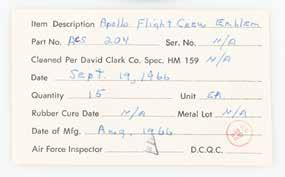 Item Description Apollo Flight Crew Emblem
Part No. ACS 204 Ser. No. N/A
Cleaned Per David Clark Co. Spec. HM 159 N/A
Date Sept. 19, 1966
Quantity 15 Unit EA
Rubber Cure Date N/A Metal Lot N/A
Date of Mfg. Aug, 1966
Air Force Inspector D.C.Q.C.